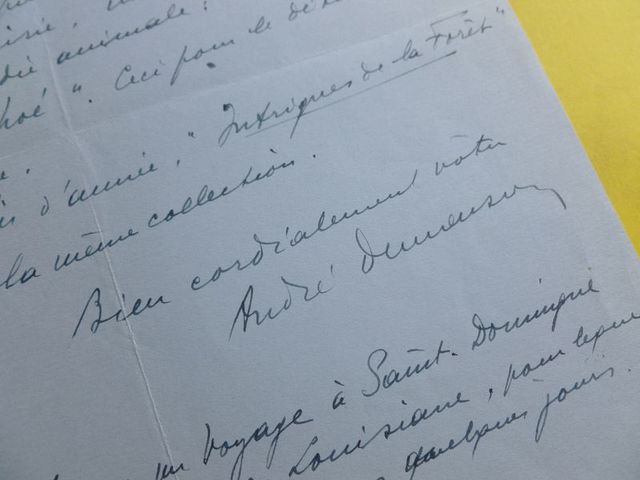 die animale.
Ceci pour le
d'année, "Intrigues de la Forêt"
la même collection.
Bien cordialement vôtre
André Demaison
un Voyage à Saint-Domingue
Louisiane, pour
quelques jours.